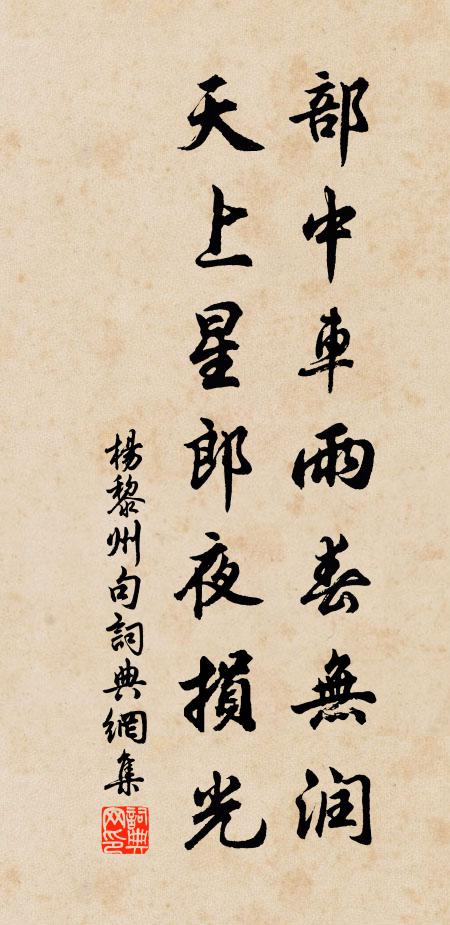 部中車雨春無润
天上星郎夜損光
楊黎州句詞典網集
詞典網印